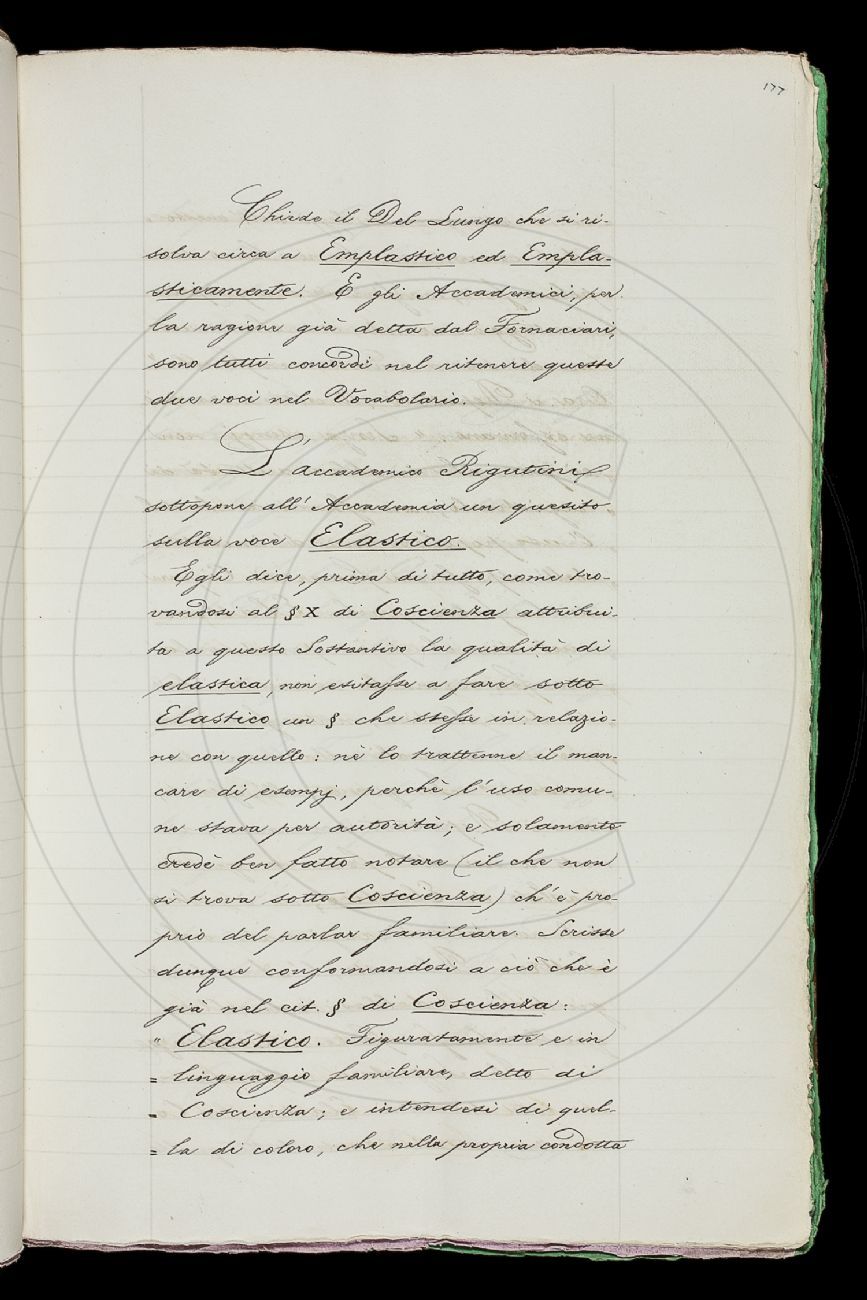 177
Chiede il Del Lungo che si ri-
solva circa a Emplastico ed Empla-
sticamente. E gli Accademici, per
la ragione già detta dal Fornaciari,
sono tutti concordi nel ritenere queste
due voci nel Vocabolario.
L'accademico Rigutini
sottopone all'Accademia un quesito
sulla voce Elastico.
Egli dice, prima di tutto, come tro-
vandosi al § X di Coscienza attribui-
ta a questo Sostantivo la qualità di
elastica, non esitasse a fare sotto
Elastico un § che stesse in relazio-
ne con quello: nè lo trattenne il man-
care di esempj, perchè l'uso comu-
ne stava per autorità; e solamente
credè ben fatto notare (il che non
si trova sotto Coscienza) ch'è pro-
prio del parlar familiare. Scrisse
dunque conformandosi a ciò che è
già nel cit. § di Coscienza:
" Elastico. Figuratamente e in
= linguaggio familiare, detto di
= Coscienza; e intendesi di quel-
= la di coloro, che nella propria condotta